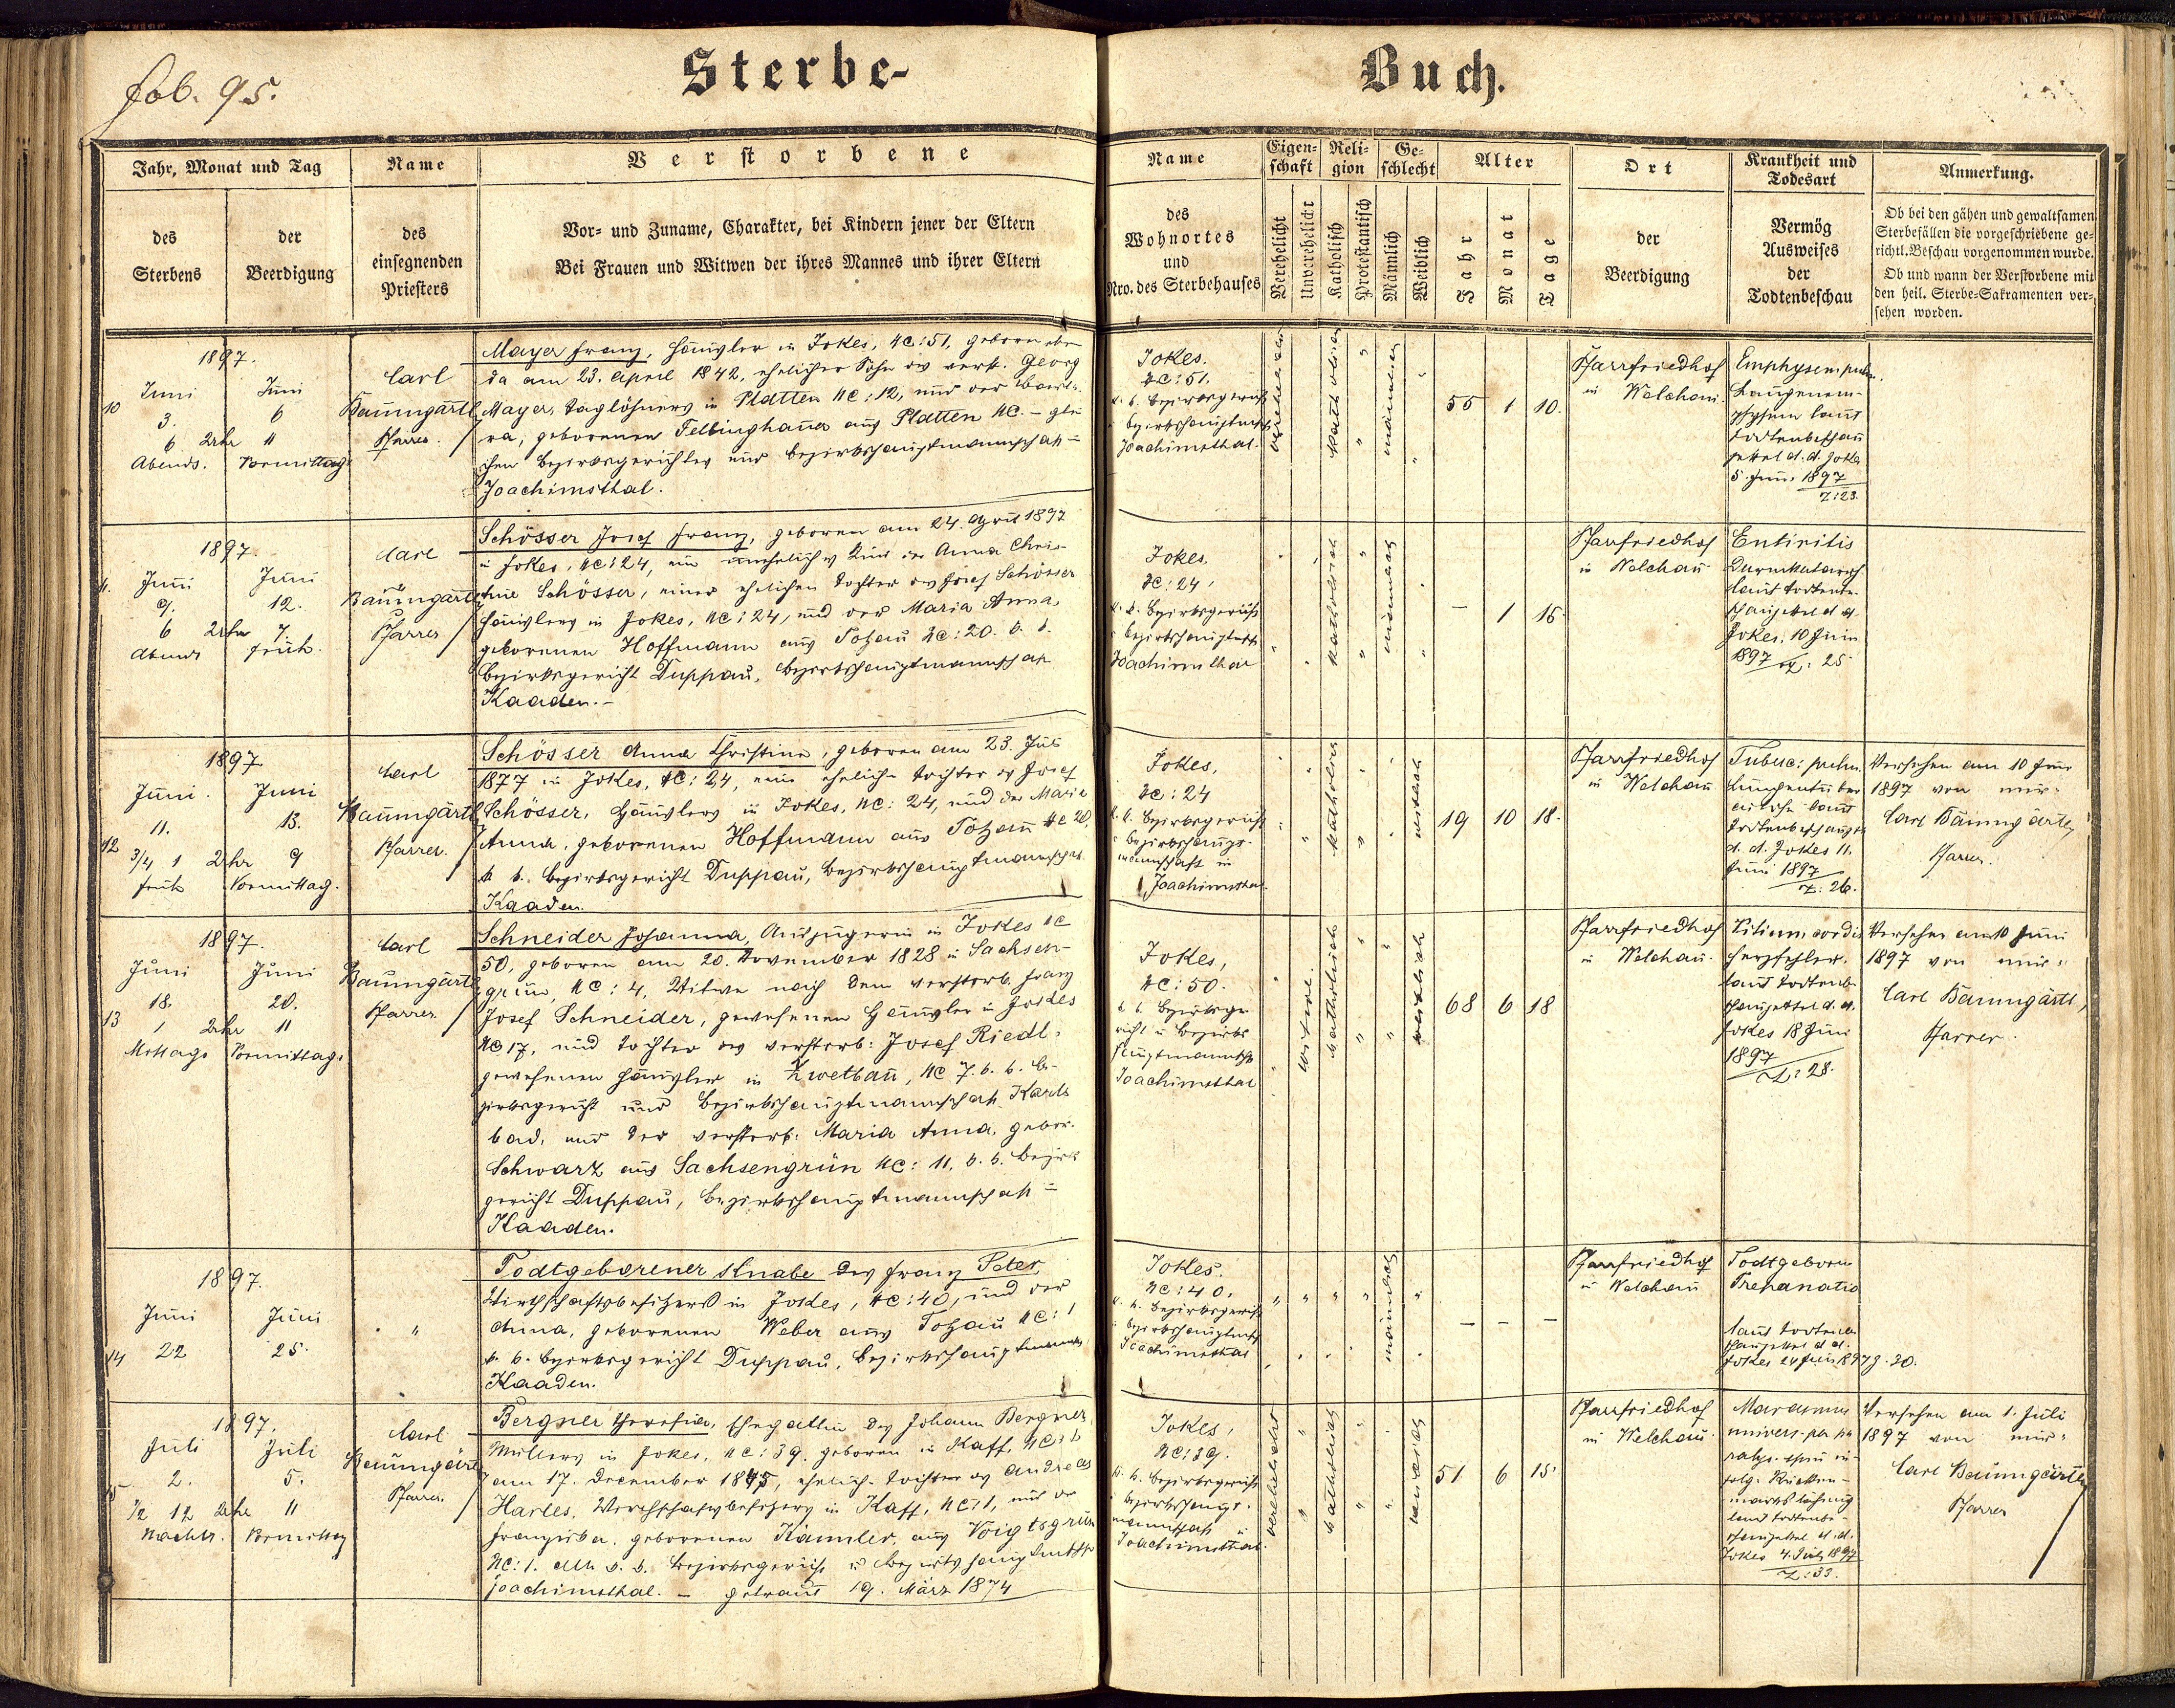 fol. 95.
Sterbe-
Buch.
Jahr, Monat und Tag
des Sterbens
der Beerdigung
Name
des
einsegnenden
Priesters
Verstorbene
Vor- und Zuname, Charakter, bei Kindern jener der Eltern
Bei Frauen und Witwen der ihres Mannes und ihrer Eltern
Name
des
Wohnortes
und
Nro. des Sterbehauses
Eigen-
schaft
Verehelicht
Unverehelicht
Reli-
gion
Katholisch
Protestantisch
Ge-
schlecht
Männlich
Weiblich
Alter
Jahr
Monat
Tage
Ort
der
Beerdigung
Krankheit und
Todesart
Vermög
Ausweises
der
Todtenbeschau
Anmerkung.
Ob bei den gähen und gewaltsamen
Sterbefällen die vorgeschriebene ge-
richtl. Beschau vorgenommen wurde.
Ob und wann der Verstorbene mit
den heil. Sterbe-Sakramenten ver-
sehen worden.
1897.
10
Juni
3.
6 Uhr
Abends.
Juni
6
11
Vormittag
Carl
Baumgärtl
Pfarrer.
Mayer Franz, Häusler in Jokes, NC: 51, geboren eben
da am 23. April 1842, ehelicher Sohn des verst. Georg
Mayer, Taglöhners in Platten NC: 12, und der Barba-
ra, geborenen Fellinghauer aus Platten NC. – glei
chen Bezirksgerichtes und Bezirkshauptmannschaft =
Joachimsthal.
Jokes.
NC: 51.
k. k. Bezirksgericht
Bezirkshauptmsch
Joachimsthal
verehelicht
katholisch
männlich
55
1
10.
Pfarrfriedhof
in Welchau.
Emphysem pulm.
Lungenem-
physem laut
Todtenbeschau
zettel d. d. Jokes
5. Juni 1897
Z: 23.
1897.
11.
Juni
9.
6 Uhr
Abends
Juni
12.
7
früh.
Carl
Baumgärtl
Pfarrer
Schösser Josef Franz, geboren am 24. April 1897
in Jokes, NC: 24, ein uneheliches Kind der Anna Chris-
tine Schösser, einer ehelichen Tochter des Josef Schösser
Häuslers in Jokes, NC: 24, und der Maria Anna,
geborenen Hoffmann aus Totzau NC: 20. k. k.
Bezirksgericht Duppau, Bezirkshauptmannschaft
Kaaden. –
Jokes,
NC: 24.
k. k. Bezirksgericht
Bezirkshauptmsch
Joachimsthal
katholisch
männlich
–
1
16.
Pfarrfriedhof
in Welchau
Entiritis
Darmkatarrh
laut Todtenbe-
schauzettel d. d.
Jokes, 10 Juni
1897 Z: 25
1897.
12
Juni.
11.
3/4 1 Uhr
früh
Juni
13.
9
Vormittag.
Carl
Baumgärtl
Pfarrer.
Schösser Anna Christine, geboren am 23. Juli
1877 in Jokes, NC: 24, eine eheliche Tochter des Josef
Schösser, Häuslers in Jokes, NC: 24, und der Maria
Anna, geborenen Hoffmann aus Totzau NC 20,
k. k. Bezirksgericht Duppau, Bezirkshauptmannschft
Kaaden.
Jokes,
NC: 24
k. k. Bezirksgericht
Bezirkshaupt-
mannschaft in
Joachimsthal.
katholisch
weiblich
19
10
18.
Pfarrfriedhof
in Welchau
Tuberc: pulm.
Lungentuber
culose laut
Todtenbeschauzett
d. d. Jokes 11.
Juni 1897
Z: 26.
Versehen am 10 Juni
1897 von mir:
Carl Baumgärtl,
Pfarrer.
1897.
13
Juni
18.
1 Uhr
Mittags
Juni
20.
11
Vormittags
Carl
Baumgärtl
Pfarrer
Schneider Johanna, Auszüglerin in Jokes NC
50, geboren am 20. November 1828 in Sachsen-
grün, NC: 4, Witwe nach dem verstorb. Franz
Josef Schneider, gewesenen Häusler in Jokes
NC 17, und Tochter des verstorb: Josef Riedl,
gewesenen Häusler in Zwetbau, NC 7. k. k. Be-
zirksgericht und Bezirkshauptmannschaft Karls
bad, und der verstorb: Maria Anna, gebor.
Schwarz aus Sachsengrün NC: 11. k. k. Bezirks
gericht Duppau, Bezirkshauptmannschaft =
Kaaden.
Jokes,
NC: 50.
k. k. Bezirksge
richt u Bezirks
hauptmannsch
Joachimsthal
Witwe.
katholisch
weiblich
68
6
18
Pfarrfriedhof
in Welchau.
Vitium cordis
Herzfehler.
laut Todtenbe-
schauzettel d. d.
Jokes 18 Juni
1897
Z: 28.
Versehen am 10 Juni
1897 von mir:
Carl Baumgärtl,
Pfarrer.
1897.
14
Juni
22
Juni
25.
"
Todtgeborener Knabe des Franz Peter,
Wirthschaftsbesitzers in Jokes, NC: 40, und der
Anna, geborenen Weber aus Totzau NC: 1
k. k. Bezirksgericht Duppau, Bezirkshauptmannsch
Kaaden.
Jokes.
NC: 40.
k. k. Bezirksgericht
Bezirkshauptmsch
Joachimsthal
männlich
–
–
–
Pfarrfriedhof
in Welchau
Todtgeboren
Trepanatio
laut Todtenbe
schauzettel d d.
Jokes 24 Juni 1897 Z. 30.
1897.
15
Juli
2.
1/2 12 Uhr
Nachts.
Juli
5.
11
Vormittag
Carl
Baumgärtl
Pfarrer.
Bergner Theresia, Ehegattin des Johann Bergner,
Müllers in Jokes, NC: 39. geboren in Kaff, NC: 1
am 17. December 1845, eheliche Tochter des Andreas
Harles, Wirthschaftsbesitzers in Kaff, NC: 1, und der
Franziska, geborenen Kannler, aus Voigtsgrün
NC: 1. Alle k. k. Bezirksgericht u Bezirkshauptmsch
Joachimsthal. – getraut 19. März 1874
Jokes,
NC: 39.
k. k. Bezirksgericht
Bezirkshaupt-
mannschaft
Joachimsthal.
verehelicht
katholisch
weiblich
51
6
15.
Pfarrfriedhof
in Welchau.
Marasmus
univers. per pa
ralys. spin in-
folge Rücken-
markslähmung
laut Todtenbe-
schauzettel d. d.
Jokes 4. Juli 1897
Z: 33.
Versehen am 1. Juli
1897 von mir:
Carl Baumgärtl,
Pfarrer